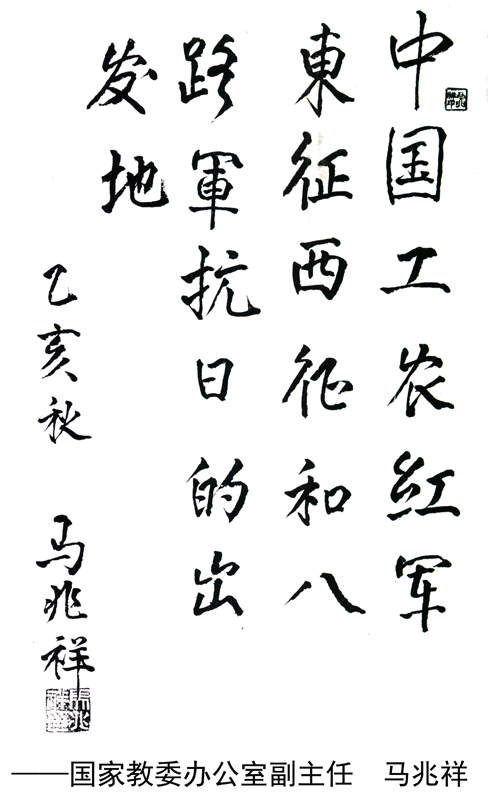 中国工农红军
東征西征和八
路軍抗日的出
发地
乙亥秋 马兆祥
——国家教委办公室副主任 马兆祥